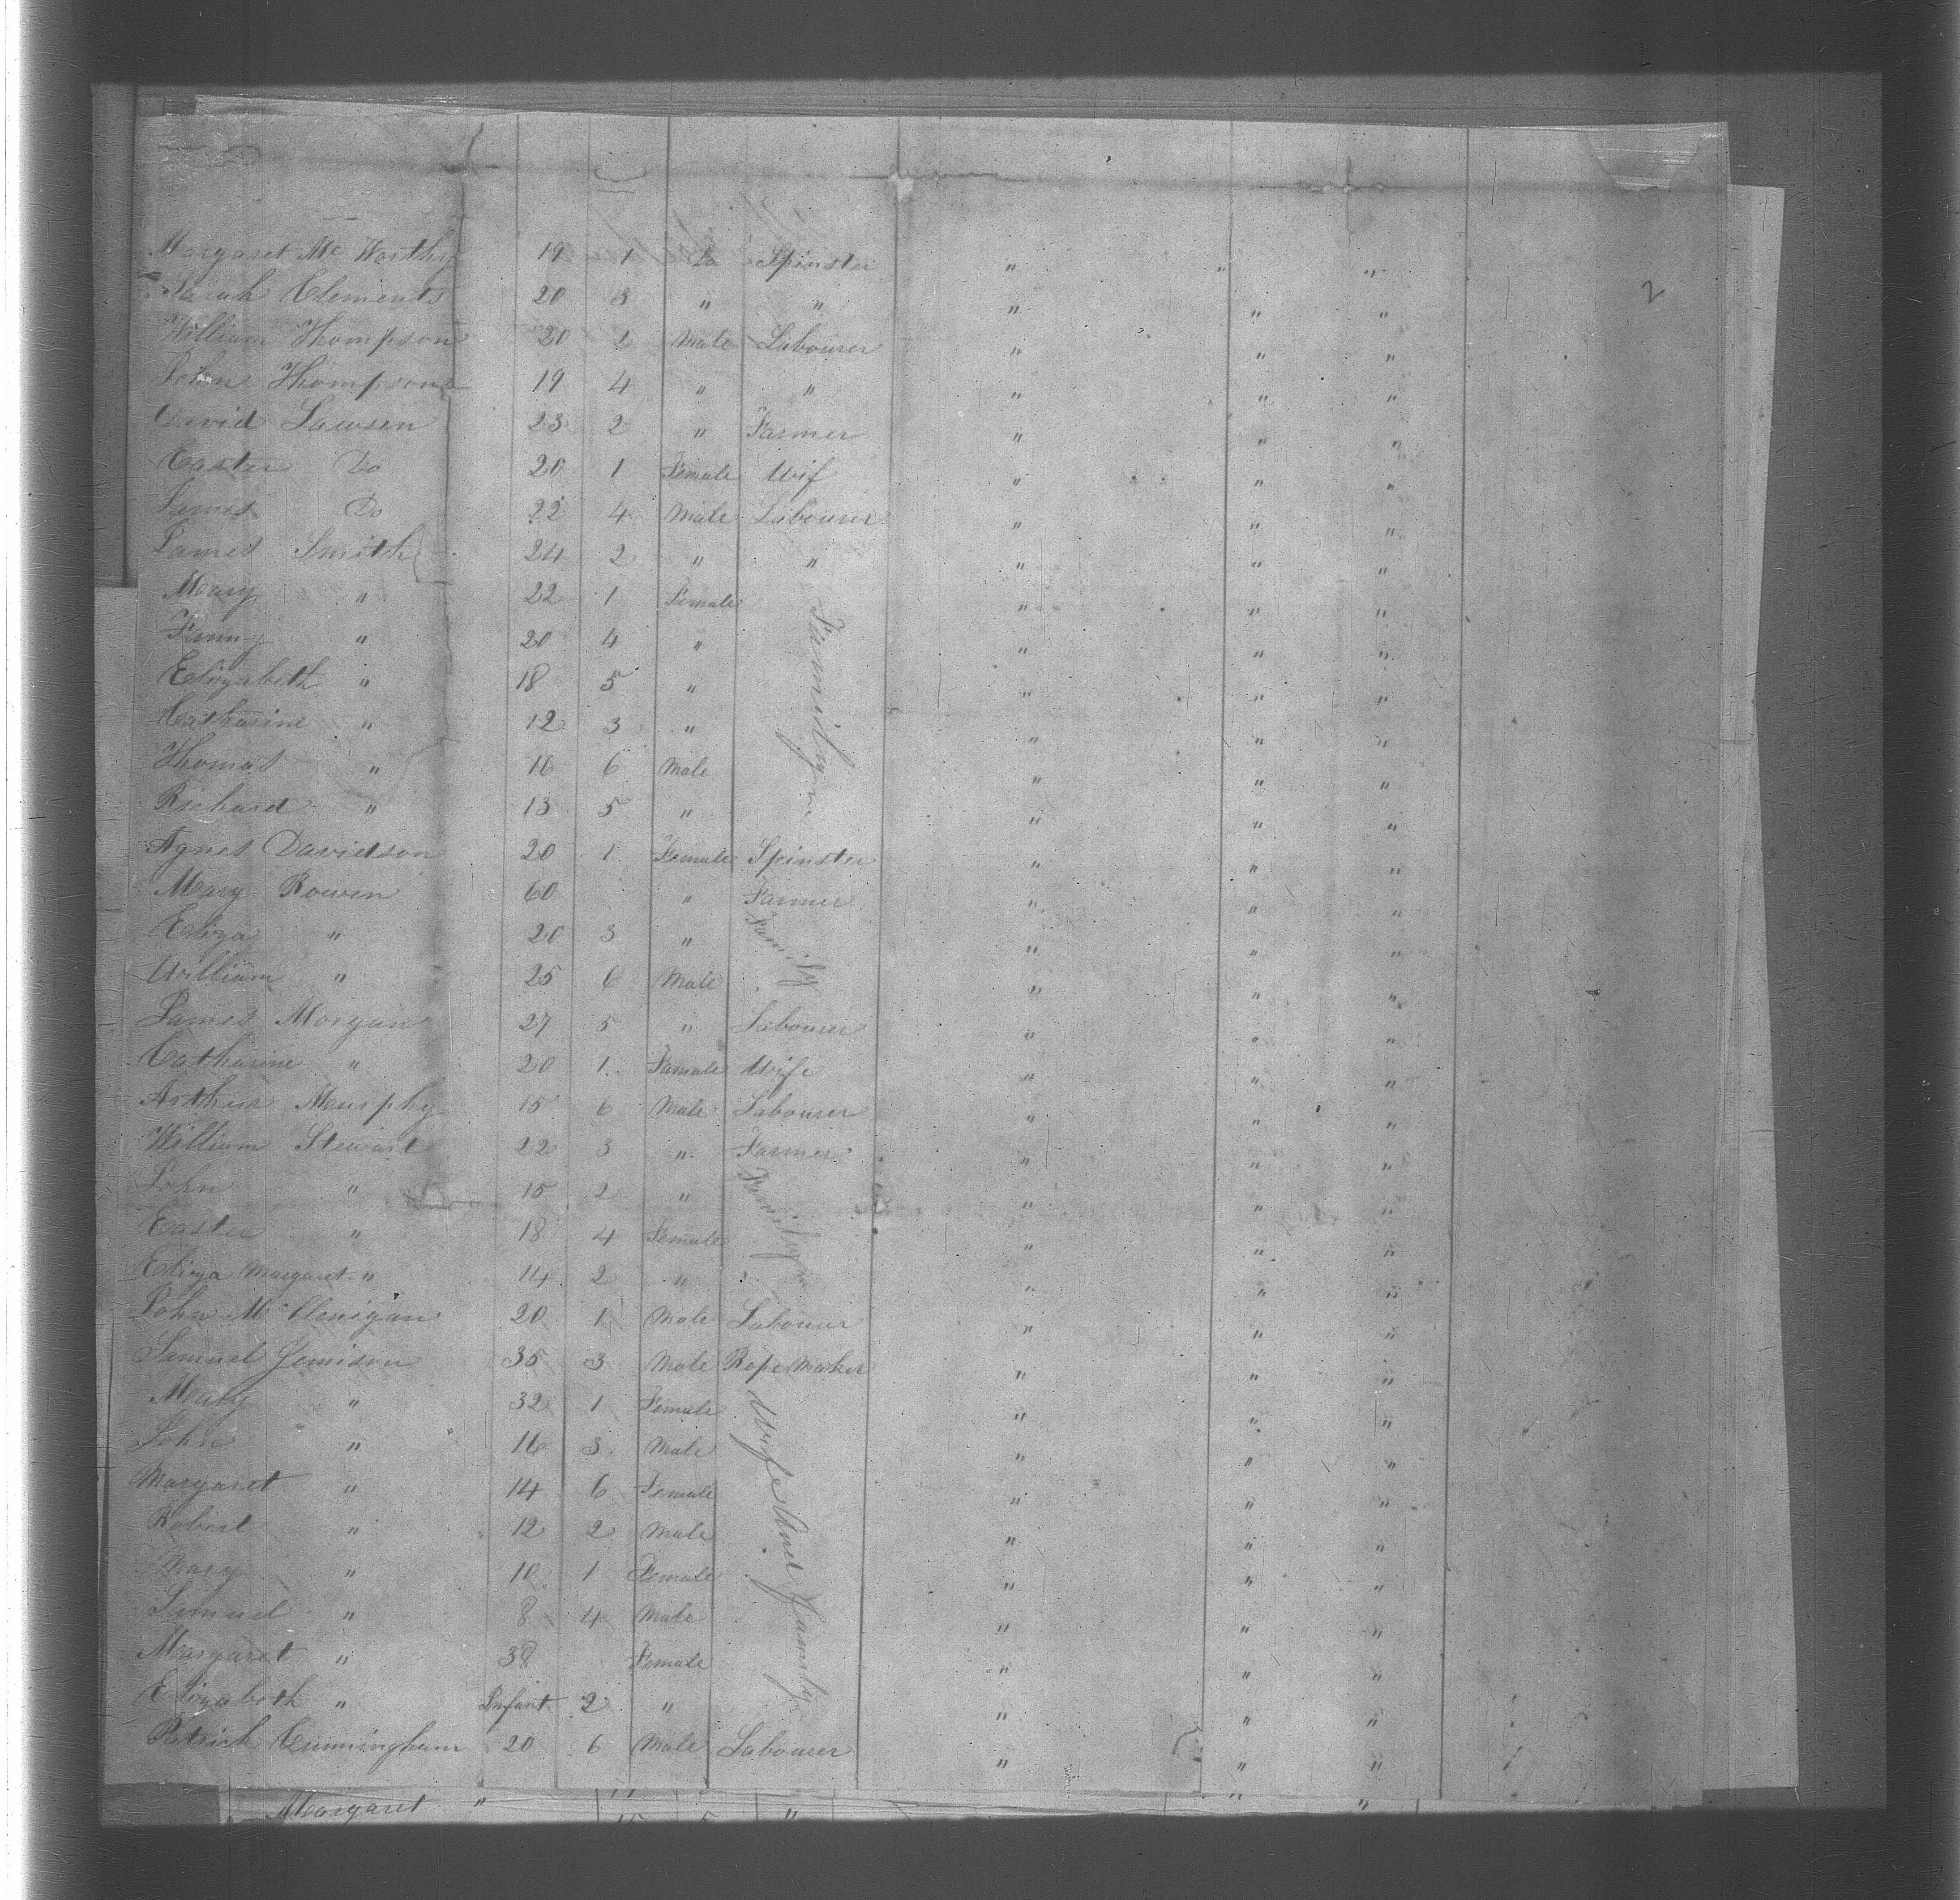 Margaret Mc Worthy 19 1 Do Spinster " " "
Sarah Clements 20 3 " " " " " 2
William Thompson 20 2 Male Labourer " " "
John Thompson 19 4 " " " " "
David Lawson 23 2 " Farmer " " "
Easter Do 20 1 Female Wif " " "
James Do 22 4 Male Labourer " " "
James Smith 24 2 " " " " "
Mary " 22 1 Female Family " " "
Fanny " 20 4 " " " "
Elizabeth " 18 5 " " " "
Catharine " 12 3 " " " "
Thomas " 16 6 Male " " "
Richard " 13 5 " " " "
Agnes Davidson 20 1 Female Spinster " " "
Mary Rowen 60 " Farmer " " "
Eliza " 20 3 " Family " " "
William " 25 6 Male " " "
James Morgan 27 5 " Labourer " " "
Catharine " 20 1 Female Wife " " "
Arthur Murphy 15 6 Male Labourer " " "
William Stewart 22 3 " Farmer " " "
John " 15 2 " Family " " "
Easter " 18 4 Female " " "
Eliza Margaret " 14 2 " " " "
John 20 1 Male Labourer " " "
Samuel Jemison 35 3 Male Rope Maker " " "
Mary " 32 1 Female Wife And Family " " "
John " 16 3 Male " " "
Margaret " 14 6 Female " " "
Robert " 12 2 Male " " "
Mary " 10 1 Female " " "
Samuel " 8 4 Male " " "
Margaret " 38 Female " " "
Elizabeth " Infant 2 " " " "
Patrick Cunningham 20 6 Male Labourer " " "
Margaret " " "